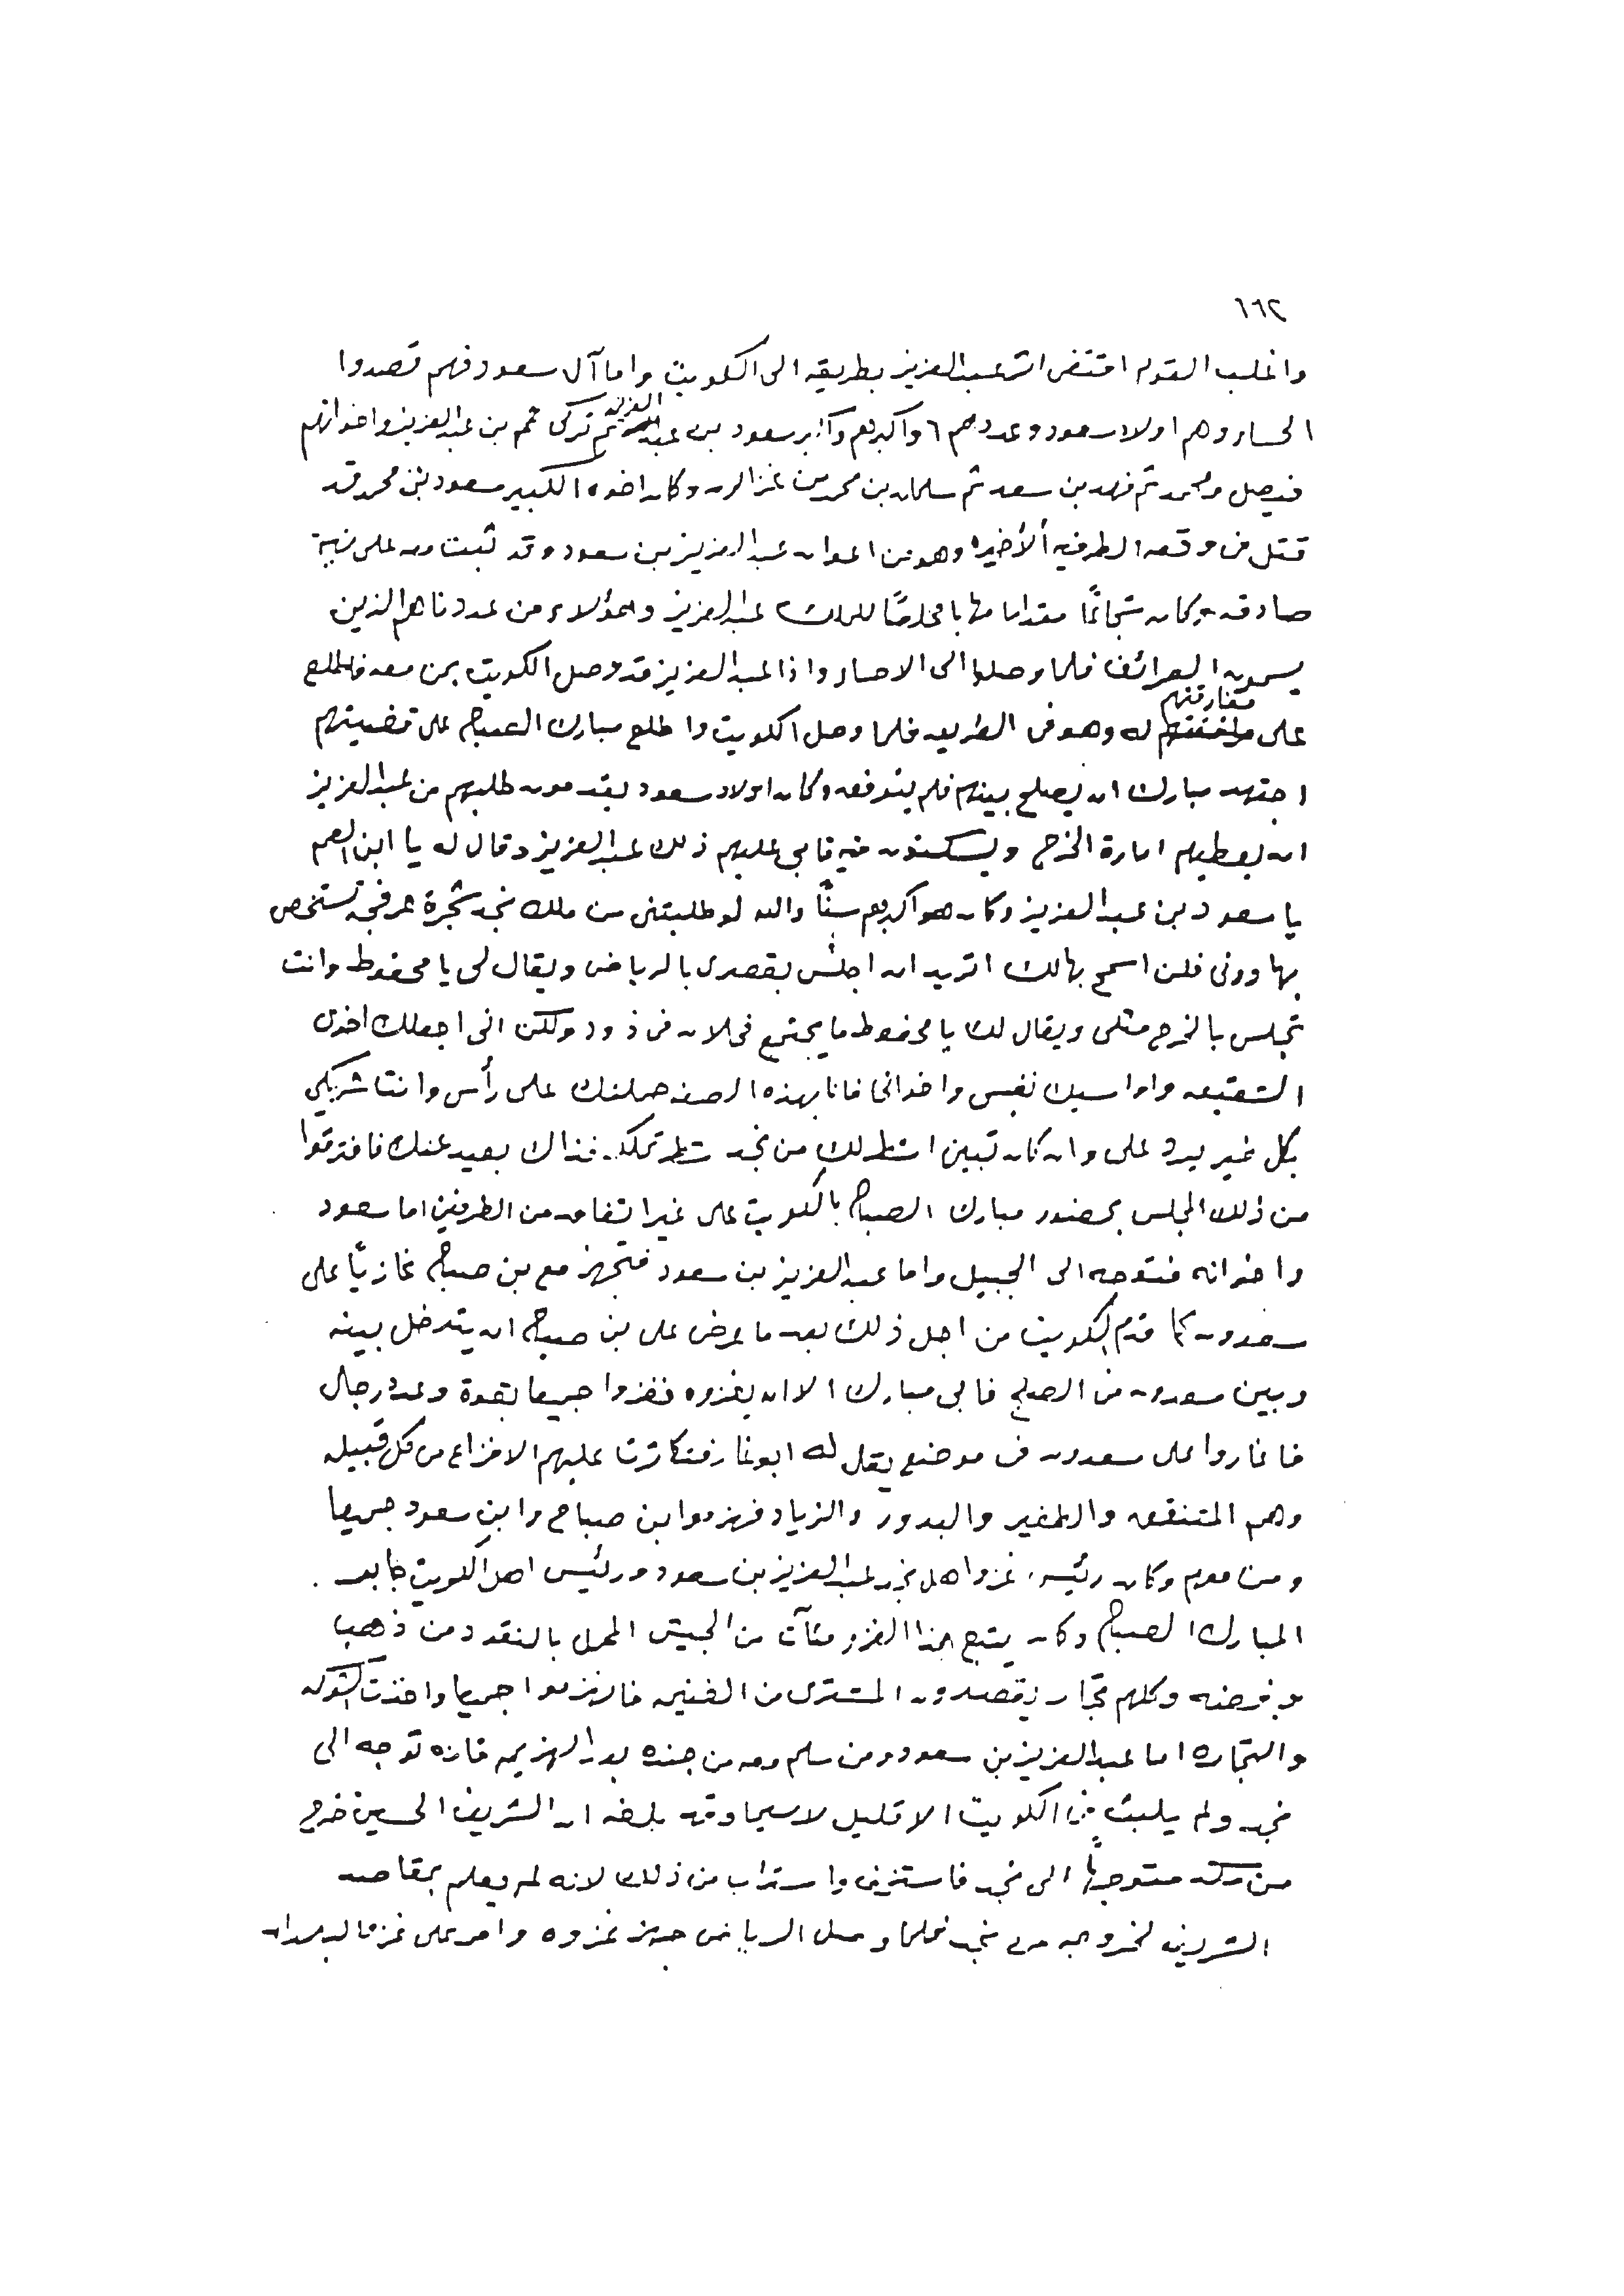 ٦٦٢
واغلب القوم اقتفى اثر عبد العزيز بطريقه الى الكويت واما آل سعود فهم قصدوا
الحسا وهم اولاد سعود وعددهم ٦ واكبرهم سعود بن عبد العزيز ثم تركي ثم بن عبد العزيز واخوانهم
فيصل ومحمد ثم فهد بن سعد ثم سلمان بن محمد من غزالان وكان اخوه الكبير سعود بن محمد قد
قتل في وقعه الطرفيه الأخيره وهو من اعوان عبد العزيز بن سعود وقد ثبت معه على نية
صادقه وكان شجاعًا مقداما مهابا مخلصًا للملك عبد العزيز وهؤلاء من عددناهم الذين
يسمون العرائف فلما وصلوا الى الاحساء واذا عبد العزيز قد وصل الكويت بمن معه فاطلع
على مفارقتهم له وهو في الطريق فلما وصل الكويت واطلع مبارك الصباح على قضيتهم
اجتهد مبارك ان يصلح بينهم فلم يتوفق وكان اولاد سعود يقدمون طلبهم من عبد العزيز
ان يعطيهم امارة الخرج ويسكنون فيه فابى عليهم ذلك عبد العزيز وقال له يا ابن العم
يا سعود بن عبد العزيز وكان هو اكبرهم سنًّا والله لو طلبتني من ملك نجد شجرة عرفجة تستخص
بها دوني فلن اسمح بها لك اتريد ان اجلس بقصري بالرياض ويقال لي يا محفوظ وانت
تجلس بالخرج مثلي ويقال لك يا محفوظ ما يجتمع فحلان في ذود ولكن اني اجعلك اخوي
الشقيق واواسيك نفسي واخواني فانا بهذه الصفه حملتك على رأسي وانت شريكي
بكل غير يرد علي وان كان تبين اشطر لك من نجد شطر تملكه فذاك بعيد عنك فافترقوا
من ذلك المجلس بحضور مبارك الصباح بالكويت على غير اتفاق من الطرفين اما سعود
واخوانه فتوجه الى الجبيل واما عبد العزيز بن سعود فتجهز مع بن صباح غازيًا على
سعدون كما قدم الكويت من اجل ذلك بعد ما عرض على بن صباح ان يتدخل بينه
وبين سعدون في الصلح فابى مبارك الا ان يغزوه فغزوا جميعا بقوة وعدد رجال
فاغاروا على سعدون في موضع يقل له ابو غار فتكاثرت عليهم الافزاع من كل قبيله
وهم المنتفق والظفير والبدور والزياد فهزموا ابن صباح وابن سعود جميعا
ومن معهم وكان رئيس غزو اهل نجد عبد العزيز بن سعود ورئيس اهل الكويت جابر
المبارك الصباح وكان يتبع هذا الغزو مئآت من الجيش المحمل بالنقود من ذهب
وفضه وكلهم تجار يقصدون المشترى من الغنيمه فانهزموا جميعا واخذت الشوكه
والتجاره اما عبد العزيز بن سعود ومن سلم معه من جنده بعد الهزيمه فانه توجه الى
نجد ولم يلبث في الكويت الا قليل لاسيما وقد بلغه ان الشريف الحسين خرج
من مكه متوجهًا الى نجد فاستخف واستراب من ذلك لانه لم يعلم بمقاصد
الشريف لخروجه من نجد فلما وصل الرياض جهز غزوه وامر على غزو البلدان